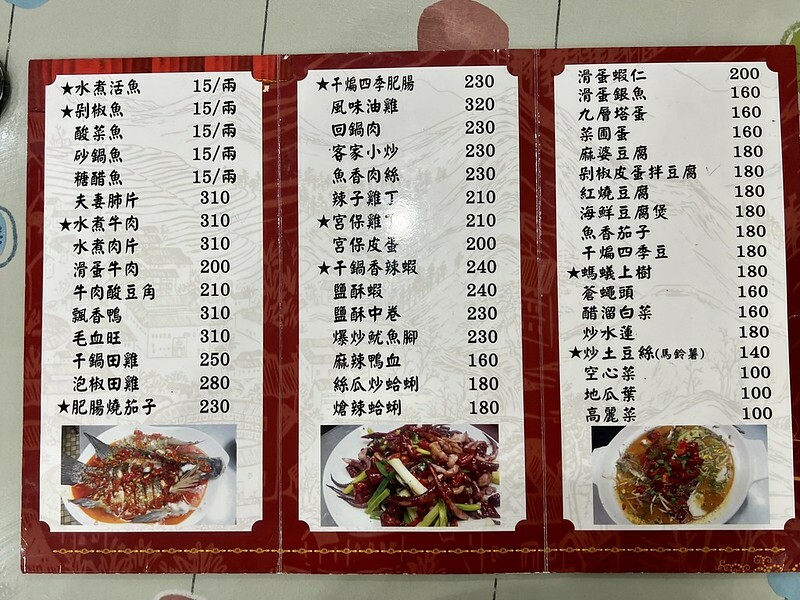 ★水煮活魚 15/兩
★剁椒魚 15/兩
酸菜魚 15/兩
砂鍋魚 15/兩
糖醋魚 15/兩
夫妻肺片 310
★水煮牛肉 310
水煮肉片 310
滑蛋牛肉 200
牛肉酸豆角 210
飄香鴨 310
毛血旺 310
干鍋田雞 250
泡椒田雞 280
★肥腸燒茄子 230
★干煸四季肥腸 230
風味油雞 320
回鍋肉 230
客家小炒 230
魚香肉絲 230
辣子雞丁 210
★宮保雞丁 210
宮保皮蛋 200
★干鍋香辣蝦 240
鹽酥蝦 240
鹽酥中卷 230
爆炒魷魚腳 230
麻辣鴨血 160
絲瓜炒蛤蜊 180
熗辣蛤蜊 180
滑蛋蝦仁 200
滑蛋銀魚 160
九層塔蛋 160
菜圃蛋 160
麻婆豆腐 180
剁椒皮蛋拌豆腐 180
紅燒豆腐 180
海鮮豆腐煲 180
魚香茄子 180
干煸四季豆 180
★螞蟻上樹 180
蒼蠅頭 160
醋溜白菜 160
炒水蓮 180
★炒土豆絲(馬鈴薯) 140
空心菜 100
地瓜葉 100
高麗菜 100